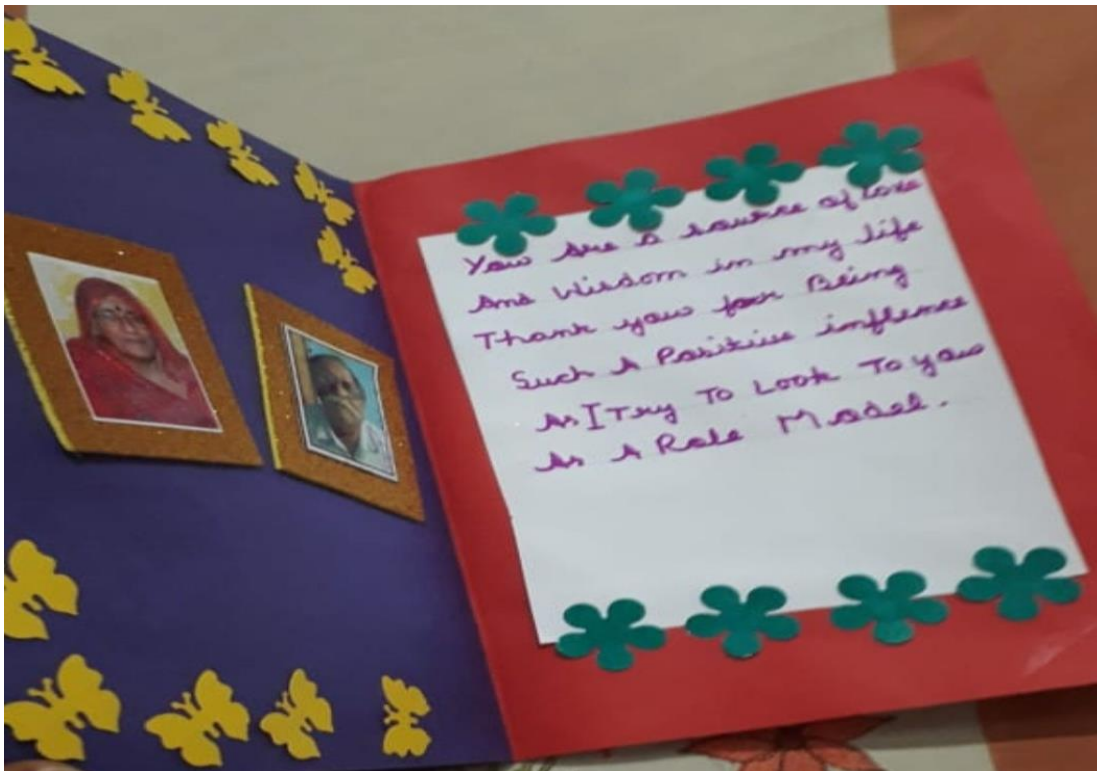 You Are A source of Love
And Wisdom in my life
Thank you for Being
Such A Positive influence
As I Try To Look To you
As A Role Model.